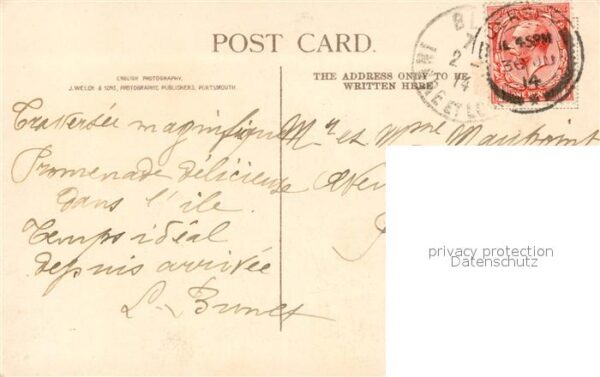 POST CARD.
ENGLISH PHOTOGRAPHY.
J. WELCH & SONS, PHOTOGRAPHIC PUBLISHERS, PORTSMOUTH.
THE ADDRESS ONLY TO BE
WRITTEN HERE
4.45PM
30 JU
14
Traversée magnifique
Promenade délicieuse
dans l'ile
Temps idéal
depuis arrivée
L. Brunet
Mr et Mme
Aven
privacy protection
Datenschutz